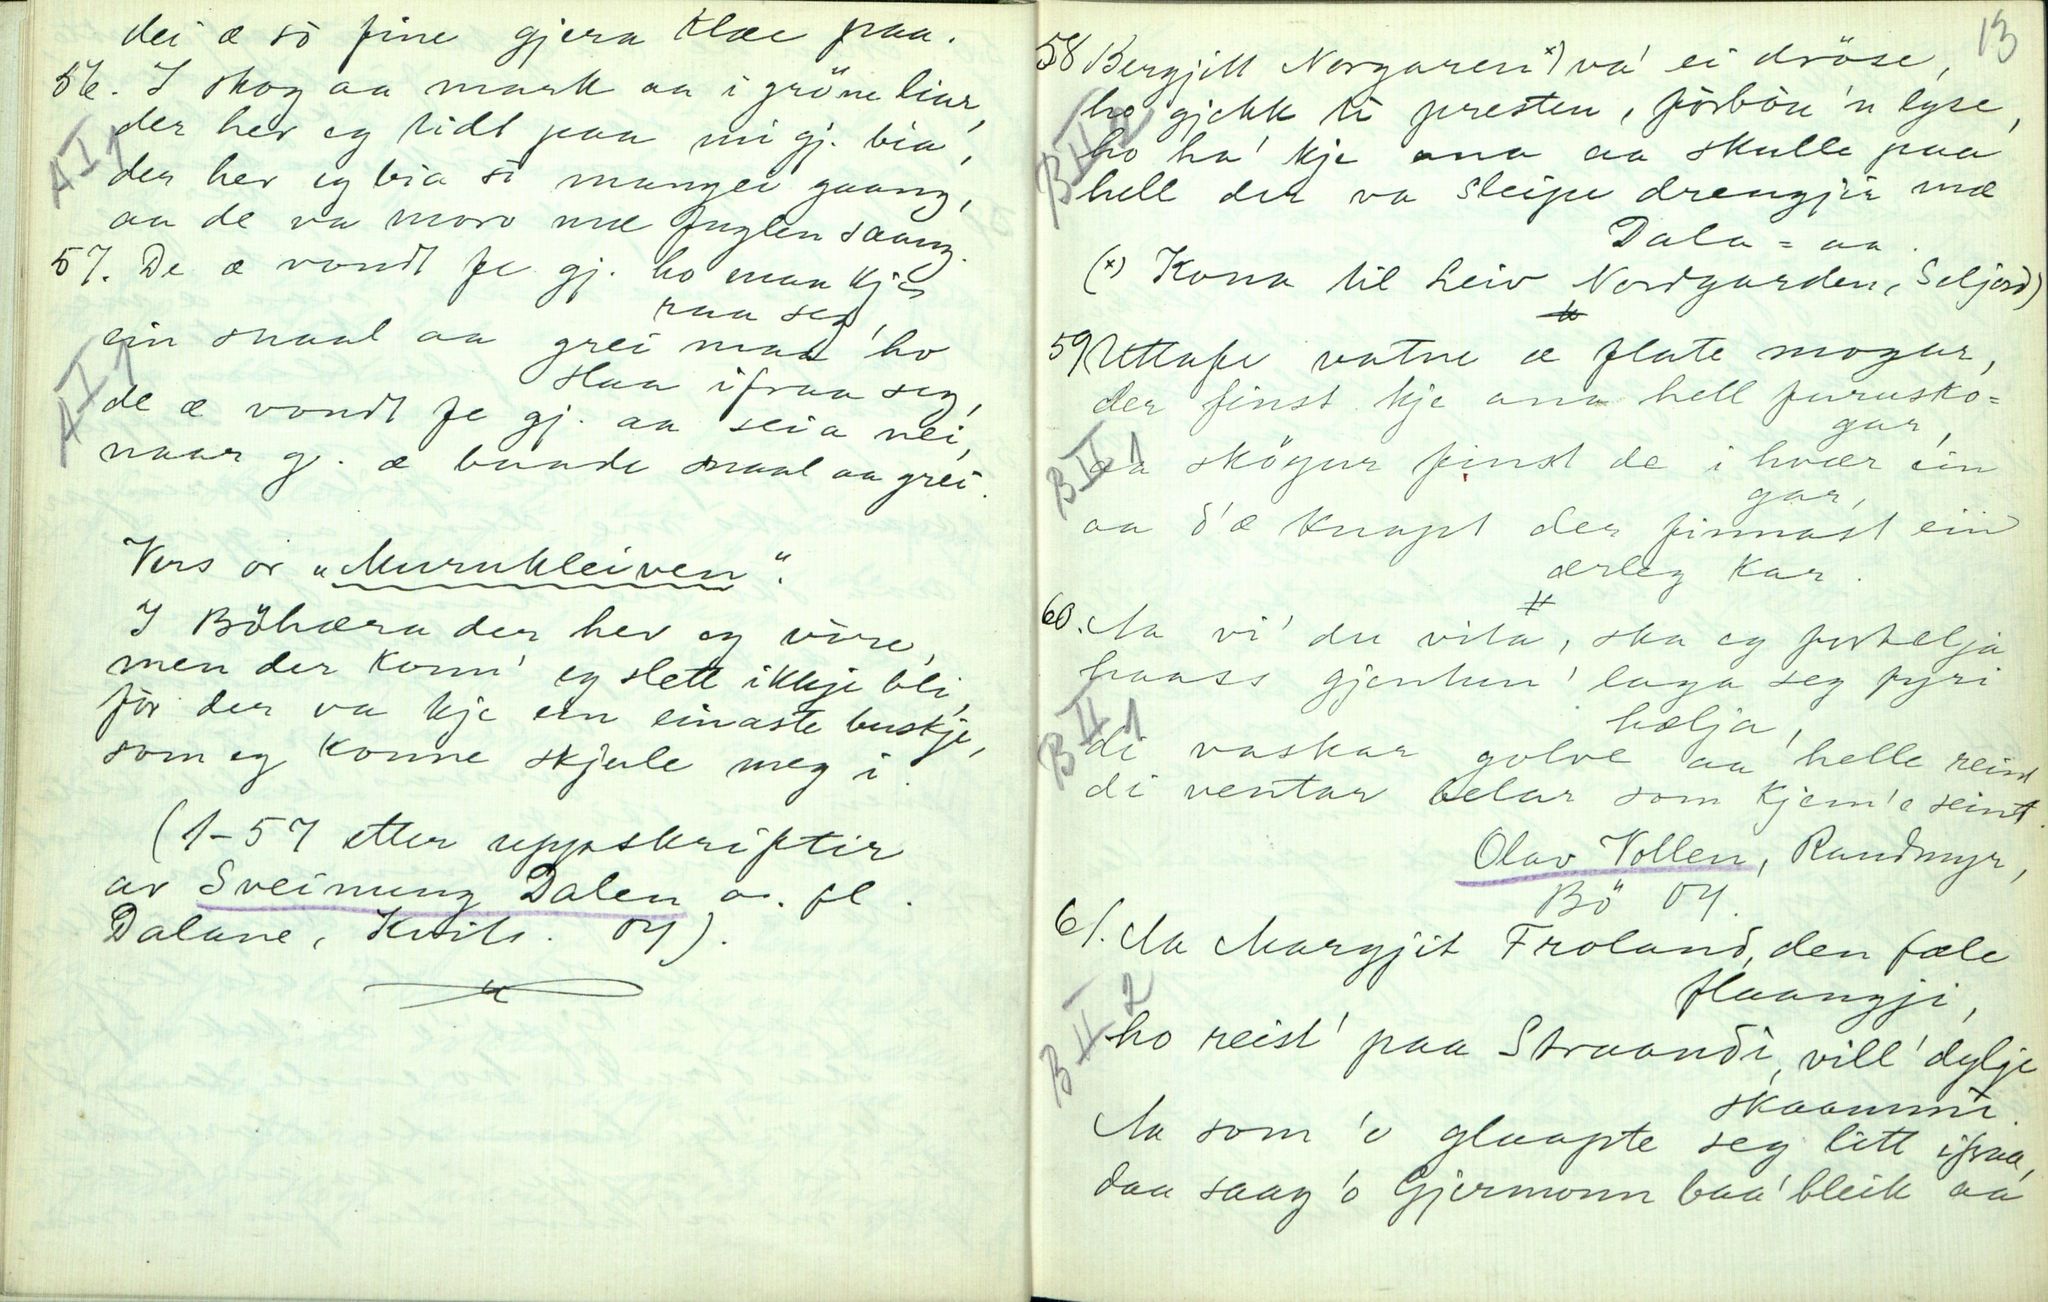 dei æ so fine gjera klæe paa.
56. I skog aa mark aa i gröne liar,
A I 1
der hev eg tidt paa mi gj. bia,
der hev eg bia so mangei gaang,
aa de va moro mæ fuglen saang.
57. De æ vondt fe gj. ho maa kje
raa seg,
A I 1
ein snaal aa grei maa ho
slaa ifraa seg,
de æ vondt fe gj. aa seia nei,
naar gj. æ baade snaal aa grei.
Vers or "Murukleiven".
I Böhæra der hev eg vore,
men der konn' eg slett ikkje bli,
for der va kje ein einaste buskje,
som eg konne skjule meg i.
(1-57 etter uppskriftir
av Sveinung Dalen o. fl.
Dalane, Kvits. 04).
13
58 Bergjitt Norgaren x) va' ei dröse,
B II 2
ho gjekk ti presten, forbön 'n lyse,
ho ha' kje ana aa skulle paa
hell der va sleipe drengjir mæ
Dala-aa.
(x) Kona til Leiv Nordgarden, Seljord)
59 Uttafe vatne æ flate mogar,
der finst kje ana hell furusko-
gar,
B II 1
aa skögur finst de i hvær ein
gar,
aa d'æ knapt der finnast ein
ærleg kar.
60. Aa vi' du vita, ska eg fortelja
haass gjentun' laga seg fyri
hælja,
B II 1
di vaskar golve aa helle reint
di ventar belar som kjem'e seint.
Olav Vollen, Raudmyr,
Bö 04.
61. Aa Margjit Froland, den fæle
flaangji,
B II 2
ho reist' paa Straandi, vill' dylje
skaammi.
Aa som 'o glaapte seg litt ifraa,
daa saag 'o Gjermonn baa' bleik aa